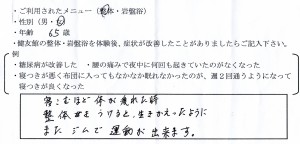 ・ご利用されたメニュー（整体・岩盤浴）
・性別（男・女）
・年齢　65 歳
・健友館の整体・岩盤浴を体験後、症状が改善したことがありましたらご記入下さい。
例
・糖尿病が改善した　・腰の痛みで夜中に何回も起きていたのがなくなった
・寝つきが悪く布団に入ってもなかなか眠れなかったのが、週2回通うようになって
寝つきが良くなった
むほど体が疲れた時
整体をうけると、生きかえったように
また ジムで 運動が 出来ます。